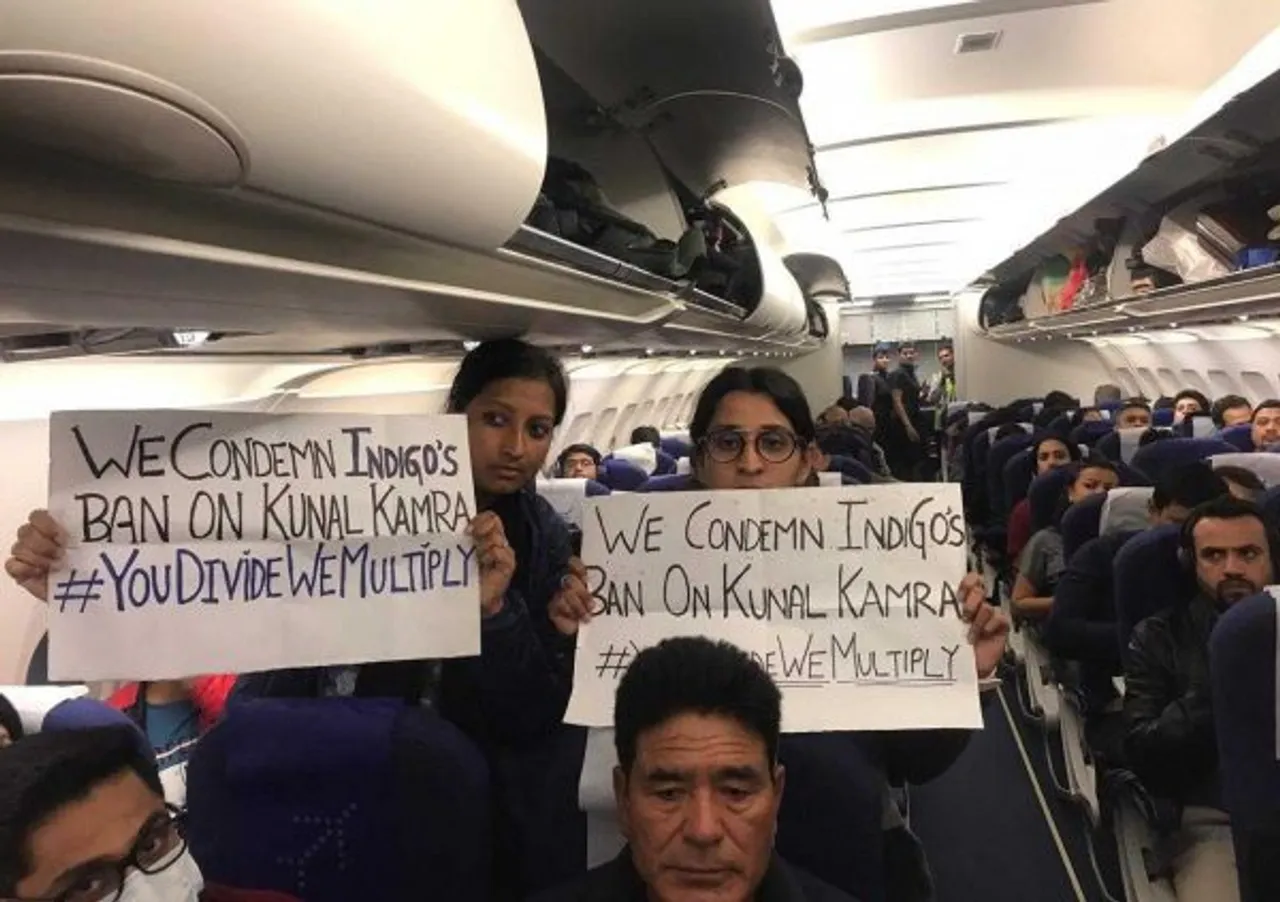 WE CONDEMN INDIGO'S
BAN ON KUNAL KAMRA
#YOUDIVIDEWEMULTIPLY
WE CONDEMN INDIGO'S
BAN ON KUNAL KAMRA
WEMULTIPLY